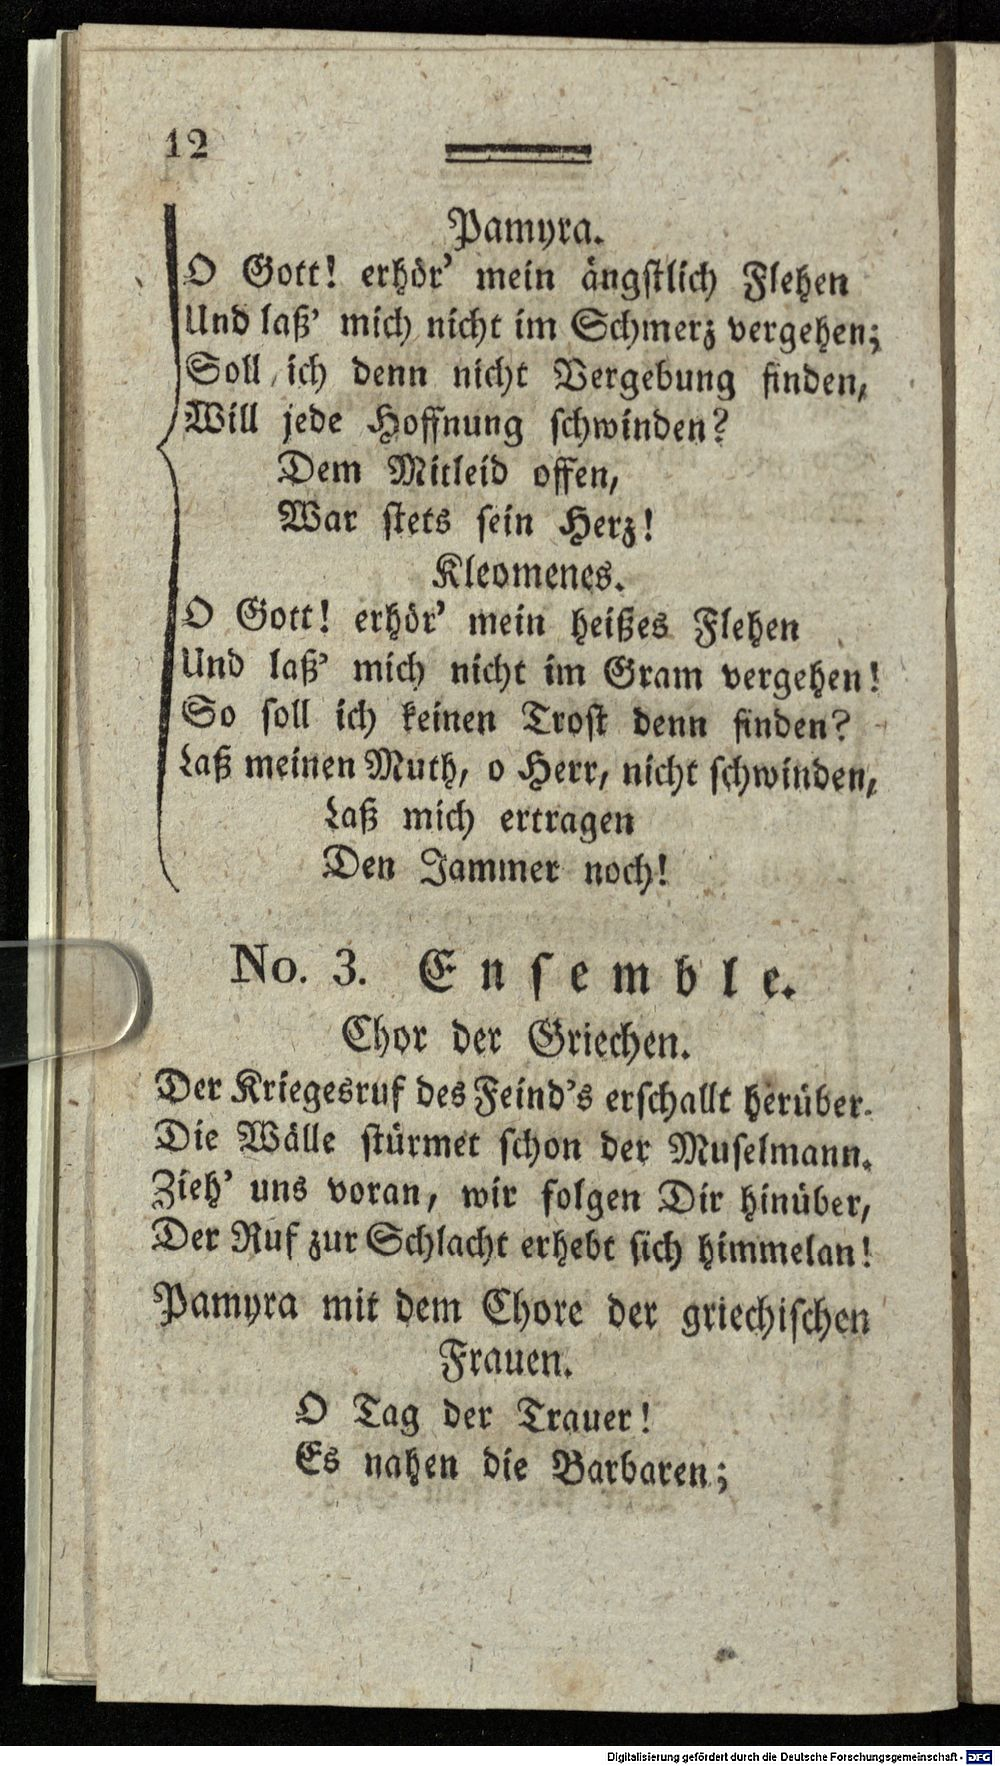 12
Pamyra.
O Gott! erhör' mein ängstlich Flehen
Und laß' mich nicht im Schmerz vergehen;
Soll ich denn nicht Vergebung finden,
Will jede Hoffnung schwinden?
Dem Mitleid offen,
War stets sein Herz!
Kleomenes.
O Gott! erhör' mein heißes Flehen
Und laß' mich nicht im Gram vergehen!
So soll ich keinen Trost denn finden?
Laß meinen Muth, o Herr, nicht schwinden,
Laß mich ertragen
Den Jammer noch!
No. 3. Ensemble.
Chor der Griechen.
Der Kriegesruf des Feind's erschallt herüber.
Die Wälle stürmet schon der Muselmann.
Zieh' uns voran, wir folgen Dir hinüber,
Der Ruf zur Schlacht erhebt sich himmelan!
Pamyra mit dem Chore der griechischen
Frauen.
O Tag der Trauer!
Es nahen die Barbaren;
Digitalisierung gefördert durch die Deutsche Forschungsgemeinschaft - DFG